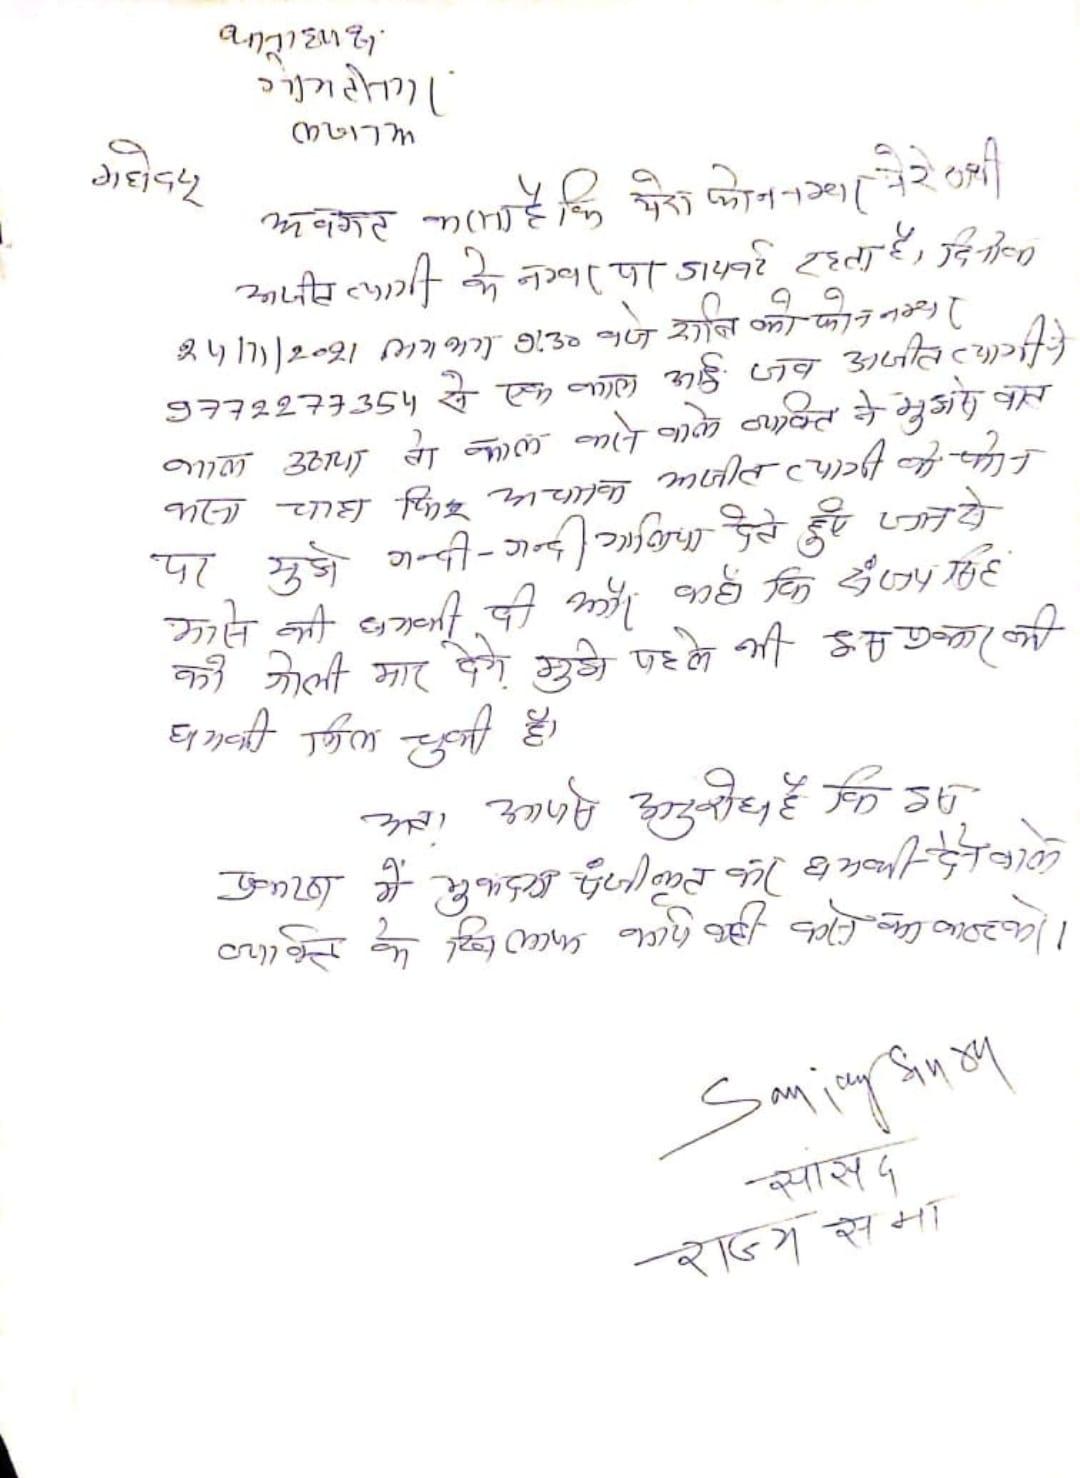 थानाध्यक्ष
गोमतीनगर
लखनऊ
महोदय
अवगत कराना है कि मेरा फोन नम्बर मेरे साथी
अजीत त्यागी के नम्बर पर डायवर्ट रहता है, दिनांक
24/11/2021 लगभग 9:30 बजे रात्रि को फोन नम्बर
9772277354 से एक काल आई जब अजीत त्यागी ने
काल उठाया तो काल करने वाले व्यक्ति ने मुझसे बात
करना चाहा फिर अचानक अजीत त्यागी के फोन
पर मुझे गन्दी-गन्दी गालिया देते हुए जान से
मारने की धमकी दी और कहा कि संजय सिंह
को गोली मार देंगे, मुझे पहले भी इस प्रकार की
धमकी मिल चुकी है।
अतः आपसे अनुरोध है कि इस
प्रकरण में मुकदमा पंजीकृत कर धमकी देने वाले
व्यक्ति के खिलाफ कार्यवाही करने का कष्ट करें।
Sanjay Singh
सांसद
राज्य सभा